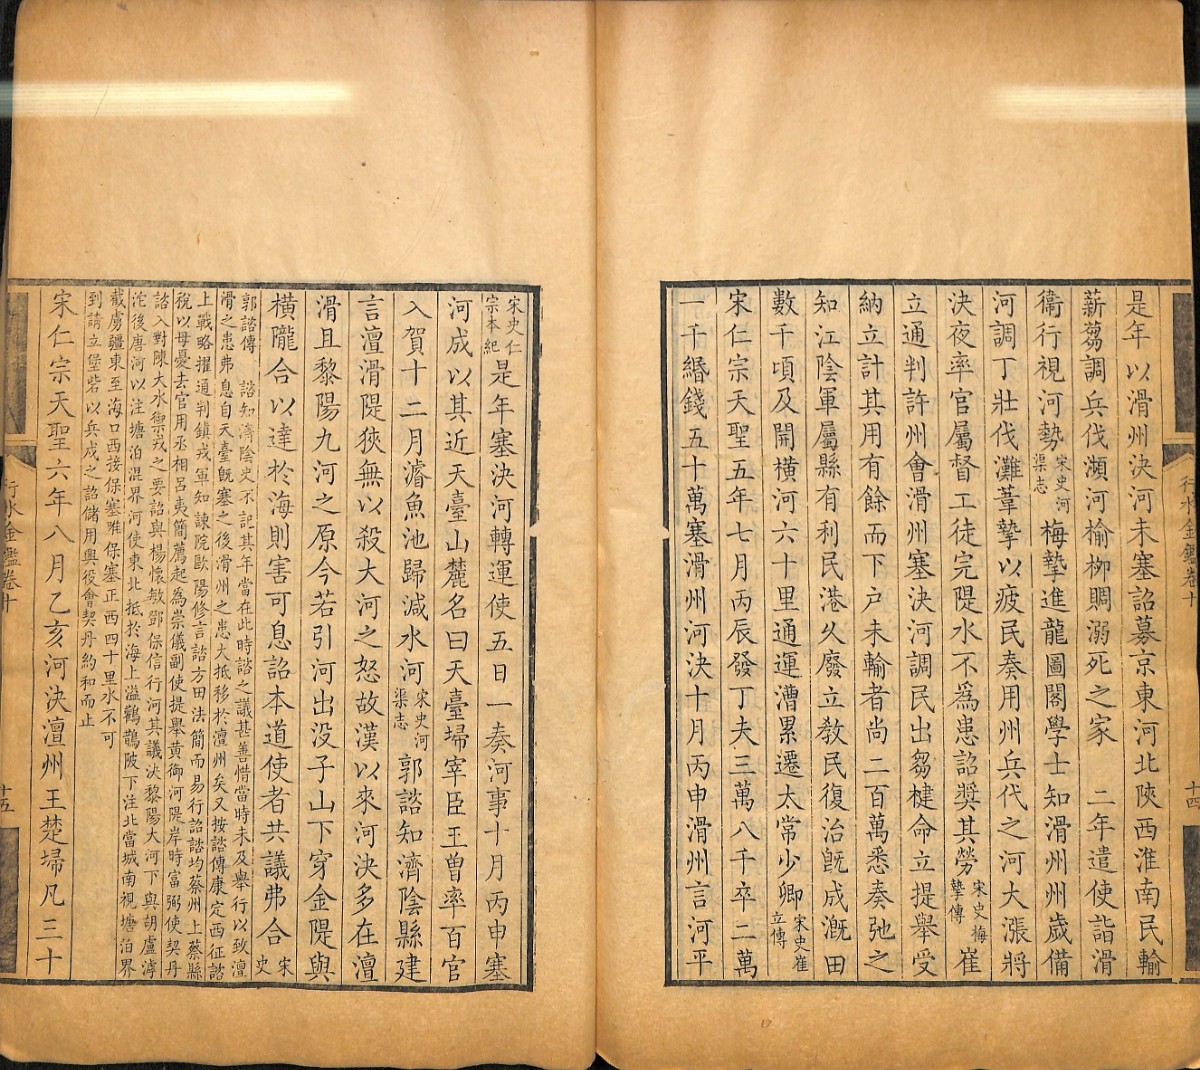 是年以滑州決河未塞詔募京東河北陝西淮南民輸
薪芻調兵伐瀕河榆柳賙溺死之家 二年遣使詣滑
衞行視河勢宋史河渠志 梅摯進龍圖閣學士知滑州州歲備
河調丁壯伐灘葦摯以疲民奏用州兵代之河大漲將
決夜率官屬督工徒完隄水不為患詔奬其勞宋史梅摯傳 崔
立通判許州會滑州塞決河調民出芻楗命立提舉受
納立計其用有餘而下戶未輸者尚二百萬悉奏弛之
知江陰軍屬縣有利民港久廢立敎民復治旣成溉田
數千頃及開橫河六十里通運漕累遷太常少卿宋史崔立傳
宋仁宗天聖五年七月丙辰發丁夫三萬八千卒二萬
一千緡錢五十萬塞滑州河決十月丙申滑州言河平
行水金鑑卷十
十四
宋史仁宗本紀 是年塞決河轉運使五日一奏河事十月丙申塞
河成以其近天臺山麓名曰天臺埽宰臣王曽率百官
入賀十二月濬魚池歸減水河宋史河渠志 郭諮知濟陰縣建
言澶滑隄狹無以殺大河之怒故漢以來河決多在澶
滑且黎陽九河之原今若引河出汶子山下穿金隄與
橫隴合以達於海則害可息詔本道使者共議弗合宋史
郭諮傳 諮知濟陰史不記其年當在此時諮之議甚善惜當時未及舉行以致澶
滑之患弗息自天臺旣塞之後滑州之患大抵移於澶州矣又按諮傳康定西征諮
上戰略擢通判鎮戎軍知諫院歐陽修言諮方田法簡而易行詔諮均蔡州上蔡縣
稅以母憂去官用丞相呂夷簡薦起為崇儀副使提舉黄御河隄岸時富弼使契丹
諮入對陳大水禦戎之要詔與楊懷敏鄧保信行河其議決黎陽大河下與胡盧滹
沱後唐河以注塘泊混界河使東北抵於海上溢鸛鵲陂下注北當城南視塘泊界
截虜疆東至海口西接保塞惟保塞正西四十里水不可
到請立堡砦以兵戍之詔儲用興役會契丹約和而止
宋仁宗天聖六年八月乙亥河決澶州王楚埽凡三十
行水金鑑卷十
十五